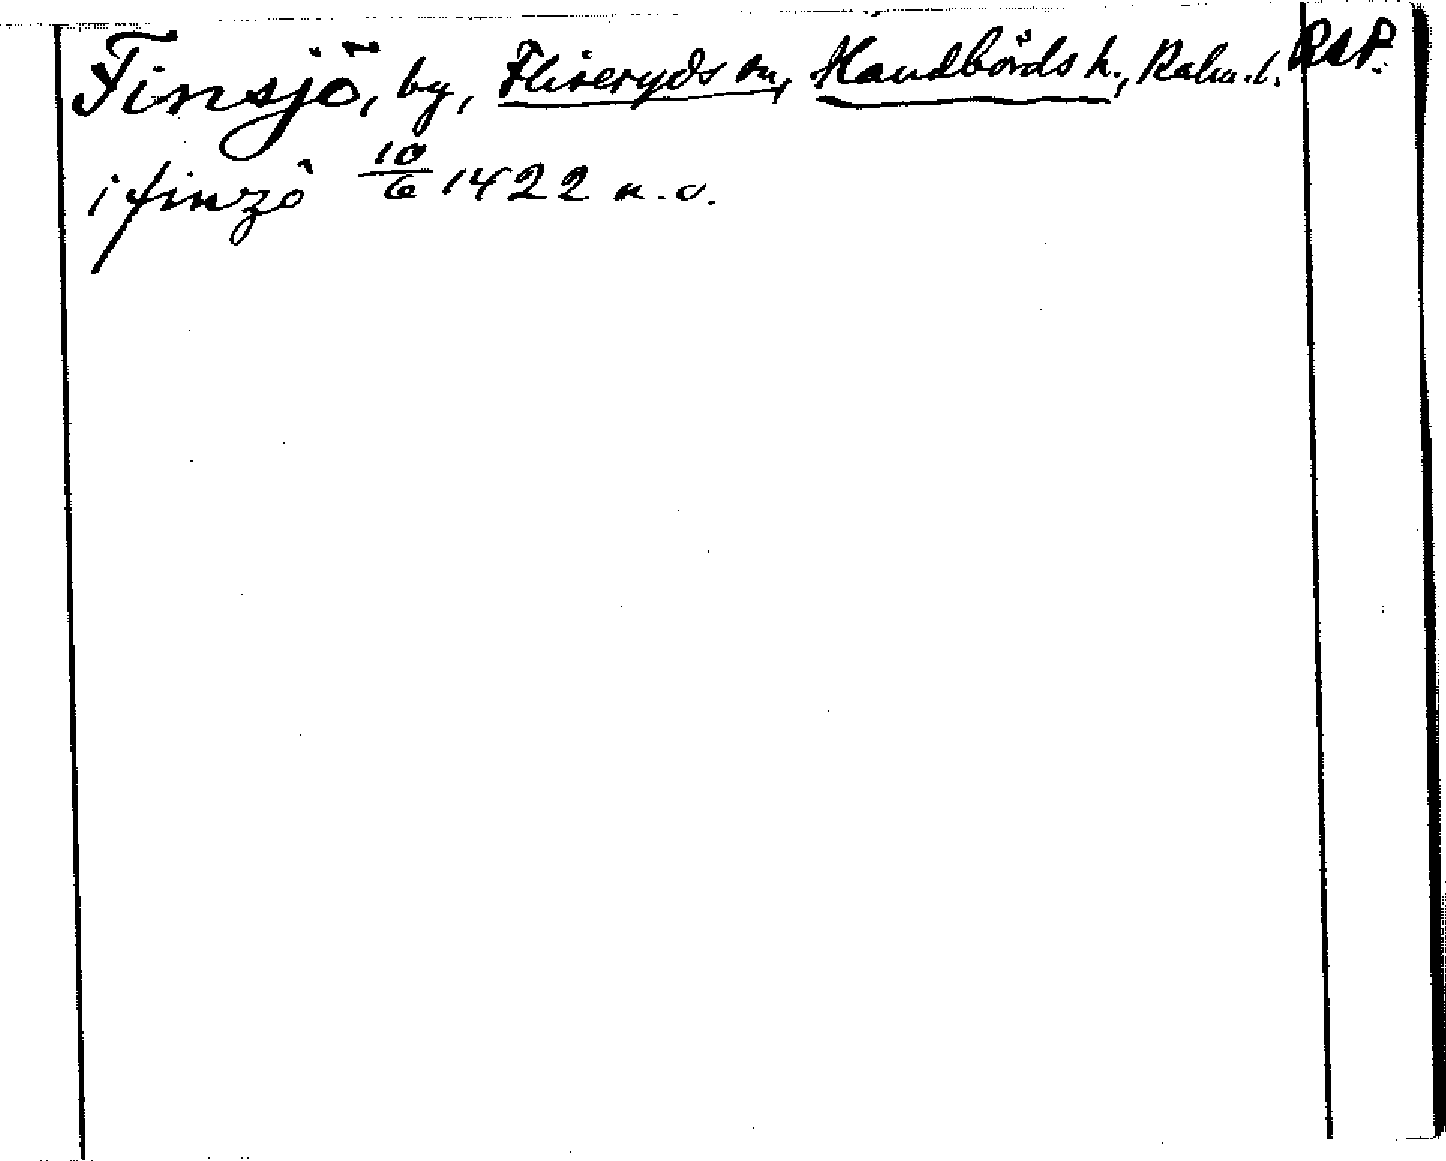 Finsjö, by, Fliseryds sn, Handbörds h., Kalm. l. RAP.
i finzö 10/6 1422 n. o.